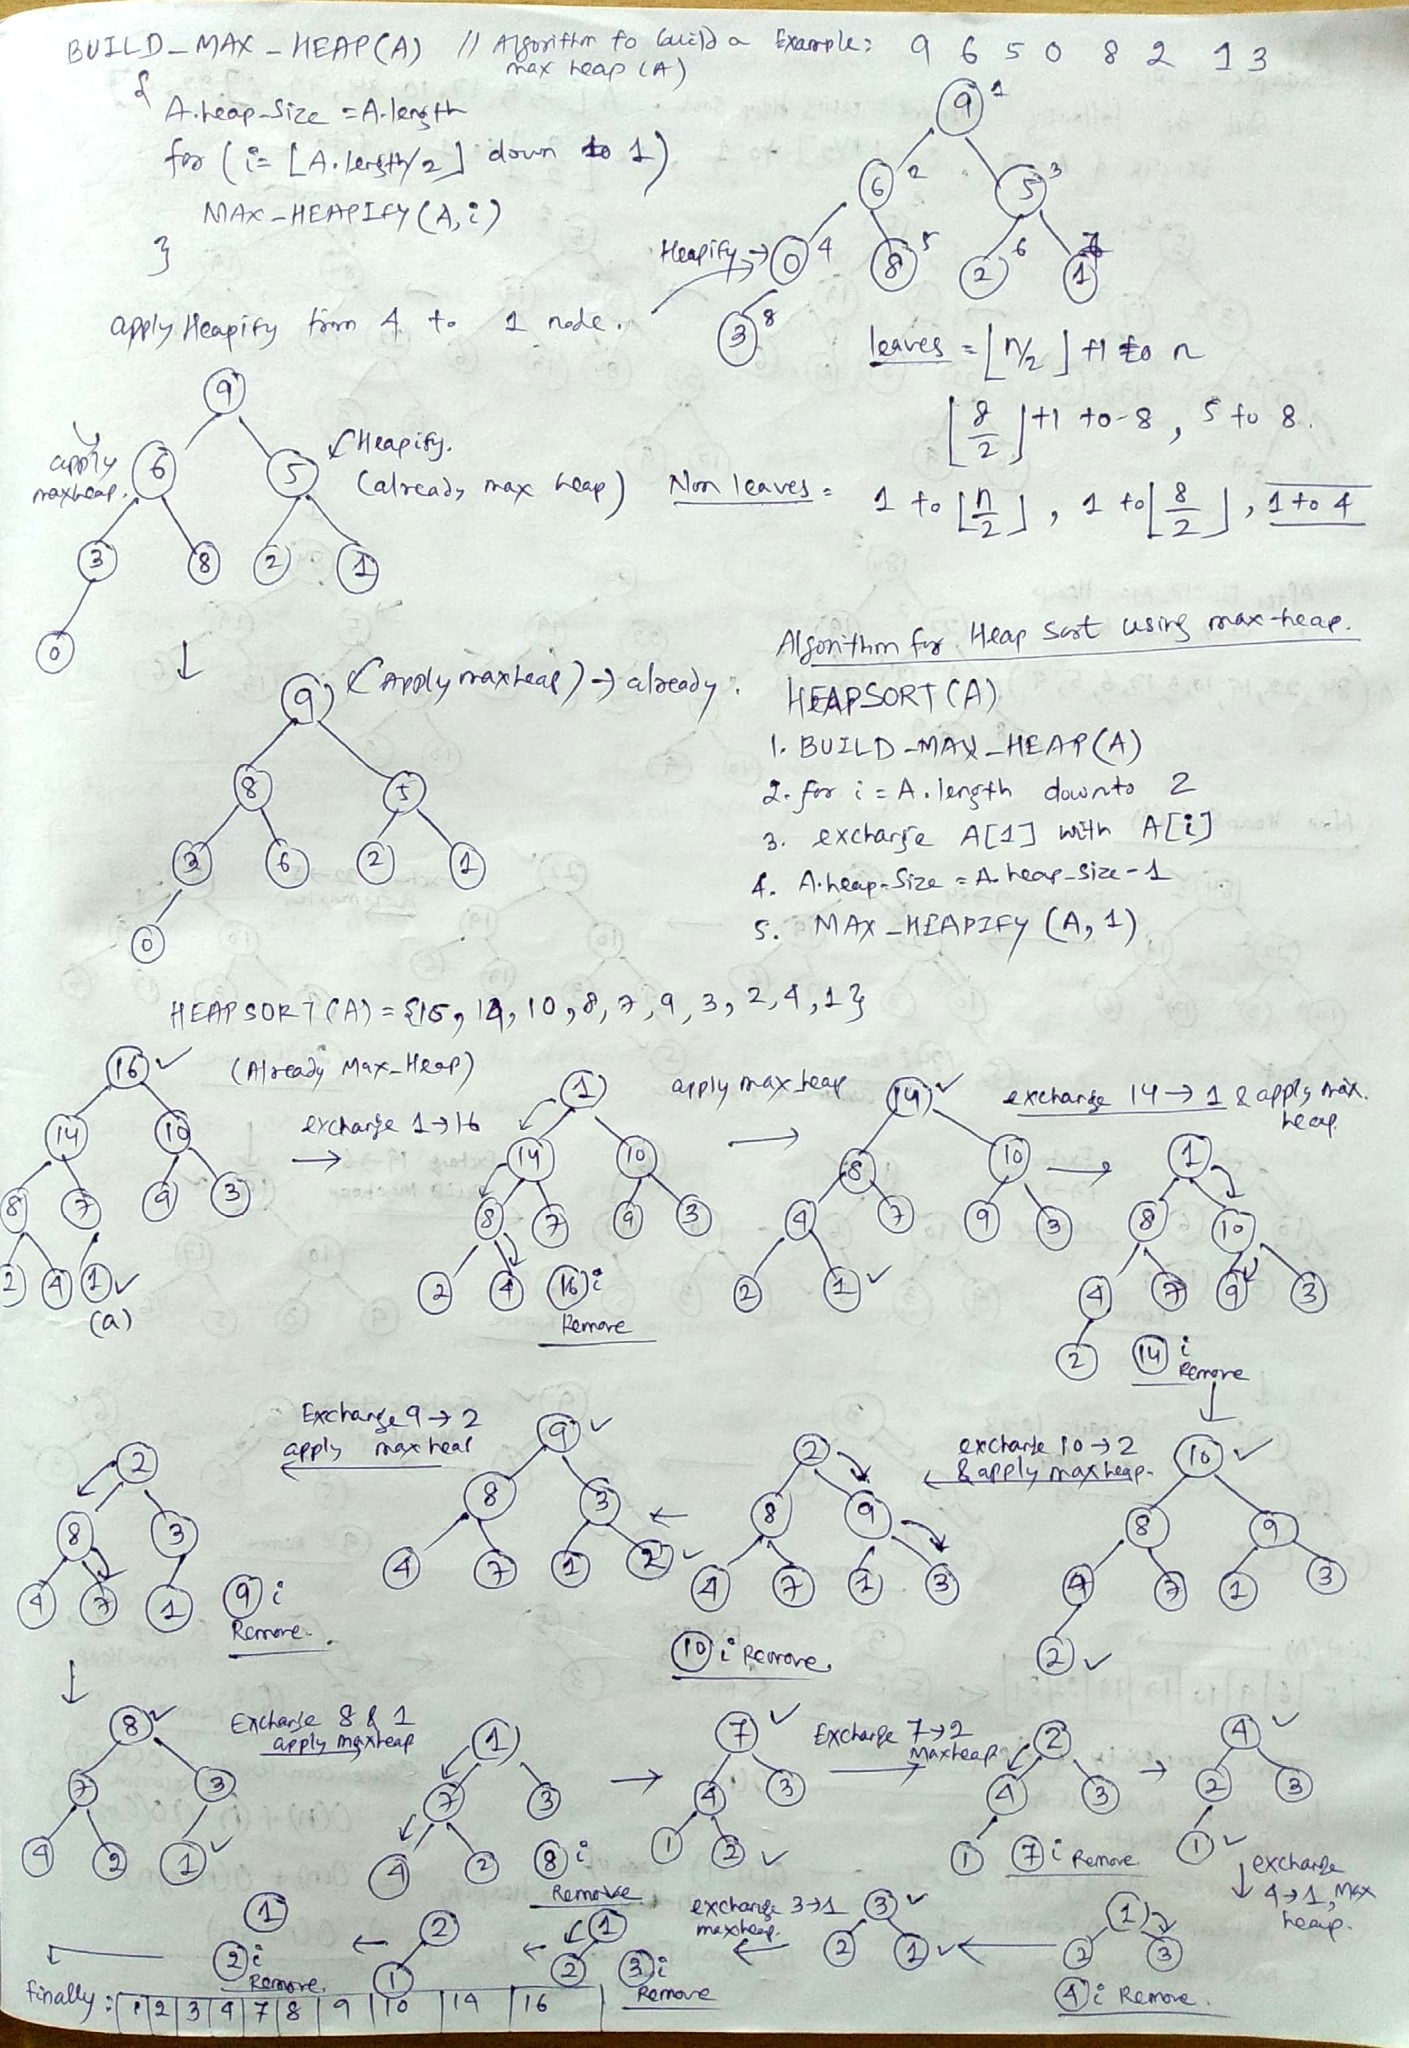 BUILD_MAX_HEAP(A) // Algorithm to build a max heap (A)
{
A.heap_Size = A.length
for (i = ⌊A.length/2⌋ down to 1)
MAX_HEAPIFY(A, i)
}
apply Heapify from 4 to 1 node.
Example: 9 6 5 0 8 2 1 3
9 1
6 2 5 3
Heapify → 0 4 8 5 2 6 1 7
3 8
leaves = ⌊n/2⌋ +1 to n
⌊8/2⌋ +1 to 8, 5 to 8.
Non leaves = 1 to ⌊n/2⌋, 1 to ⌊8/2⌋, 1 to 4
9
apply maxheap. 6 5 Heapify. (already max heap)
3 8 2 1
0
9 (Apply maxheap) → already.
8 5
3 6 2 1
0
Algorithm for Heap Sort using max-heap.
HEAPSORT(A)
1. BUILD_MAX_HEAP(A)
2. for i = A.length downto 2
3. exchange A[1] with A[i]
4. A.heap-Size = A.heap_Size-1
5. MAX_HEAPIFY (A, 1)
HEAPSORT(A) = {16, 14, 10, 8, 7, 9, 3, 2, 4, 1}
(Already Max_Heap)
16
14 10
8 7 9 3
2 4 1
(a)
exchange 1→16
1
14 10
8 7 9 3
2 4 16 i
Remove
apply max heap
14
8 10
4 7 9 3
2 1
exchange 14→1 & apply max. heap.
1
8 10
4 7 9 3
2 14 i
Remove
10
8 9
4 7 1 3
2
exchange 10→2
& apply maxheap.
2
8 9
4 7 1 3
10 i Remove.
9
8 3
4 7 1 2
Exchange 9→2
apply maxheap
2
8 3
4 7 1 9 i
Remove.
8
7 3
4 2 1
Exchange 8 & 1
apply maxheap
1
7 3
4 2 8 i
Remove
7
4 3
1 2
Exchange 7→2
Maxheap
2
4 3
1 7 i Remove.
4
2 3
1
exchange
4→1, Max
heap.
1
2 3
4 i Remove.
3
2 1
exchange 3→1
maxheap.
1
2 3 i
Remove
2
1
1
2 i
Remove.
finally: 1 2 3 4 7 8 9 10 14 16